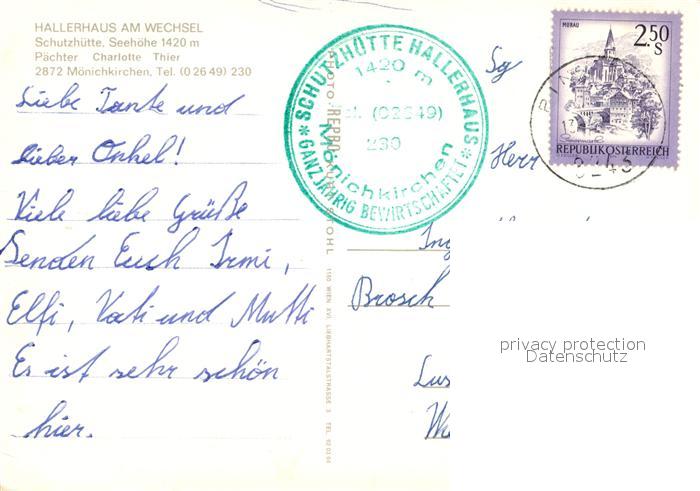 HALLERHAUS AM WECHSEL
Schutzhütte, Seehöhe 1420 m
Pächter Charlotte Thier
2872 Mönichkirchen, Tel. (0 26 49) 230
Liebe Tante und
lieber Onkel!
Viele liebe Grüße
Senden Euch Irmi,
Elfi, Vati und Mutti
Es ist sehr schön
hier.
SCHUTZHÜTTE HALLERHAUS
1420 m
Tel. (02649)
230
Mönichkirchen
* GANZJÄHRIG BEWIRTSCHAFTET *
1160 WIEN XVI, LIEBHARTSTALSTRASSE 3 TEL
MURAU
2.50
S
REPUBLIK ÖSTERREICH
Herr
Ing
Brosch
privacy protection
Datenschutz